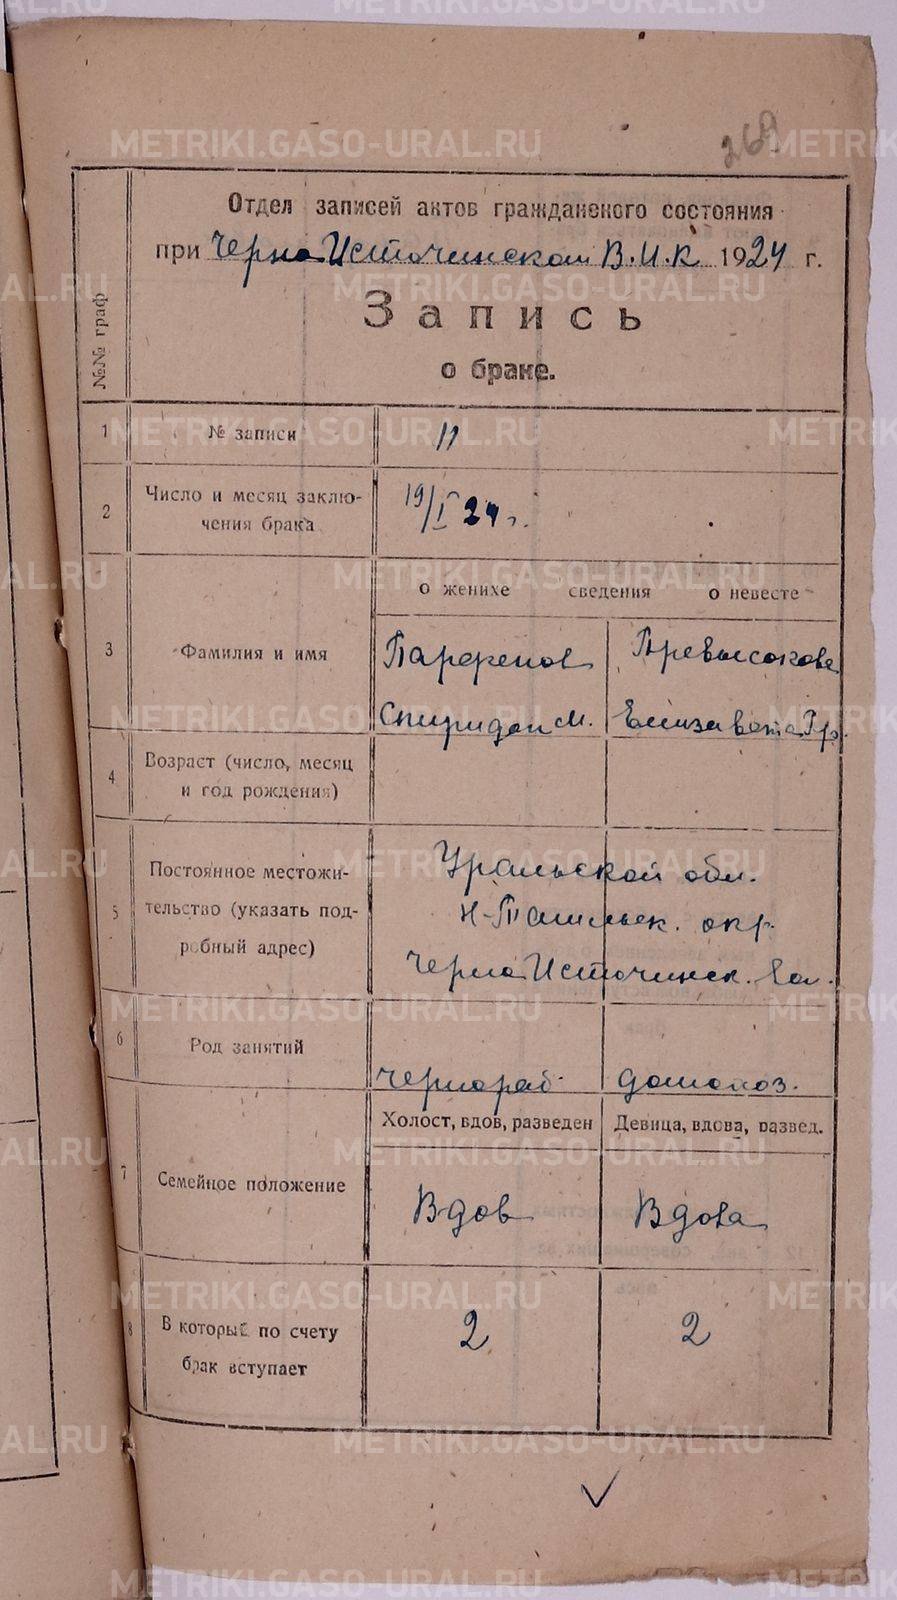 269
Отдел записей актов гражданского состояния
при Черно Источинском В.И.К. 1924 г.
№№ граф
Запись
о браке.
1 № записи 11
2 Число и месяц заклю-
чения брака 19/I 24 г.
о женихе сведения о невесте
3 Фамилия и имя Парфенов
Спиридон М. Елизавета Гр.
4 Возраст (число, месяц
и год рождения)
5 Постоянное местожи-
тельство (указать под-
робный адрес)
Уральской обл.
Н-Тагильск. окр.
Черно Источинск. вол.
6 Род занятий чернораб. домохоз.
Холост, вдов, разведен Девица, вдова, развед.
7 Семейное положение Вдов Вдова
8 В который по счету
брак вступает 2 2
METRIKI.GASO-URAL.RU